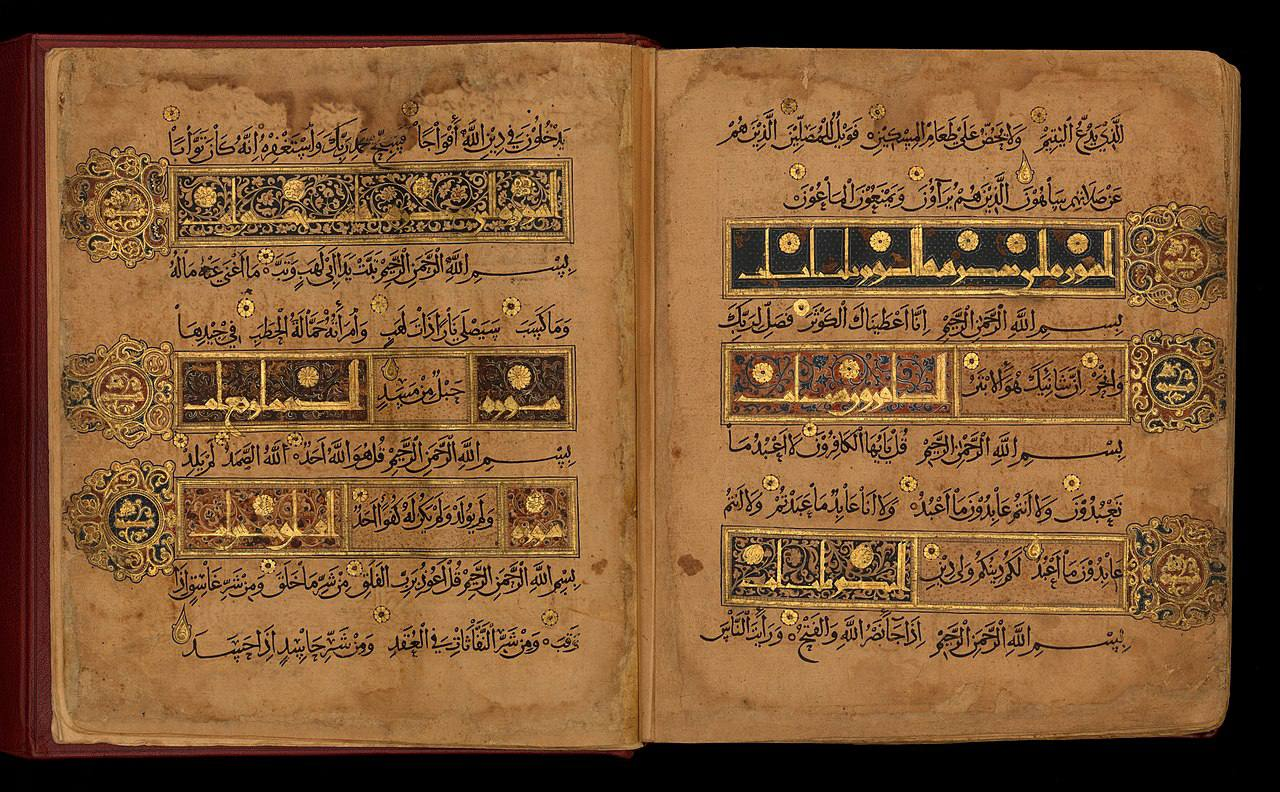 الَّذِي يَدُعُّ الْيَتِيمَ وَلَا يَحُضُّ عَلَى طَعَامِ الْمِسْكِينِ فَوَيْلٌ لِلْمُصَلِّينَ الَّذِينَ هُمْ
عَنْ صَلَاتِهِمْ سَاهُونَ الَّذِينَ هُمْ يُرَاؤُنَ وَيَمْنَعُونَ الْمَاعُونَ
بِسْمِ اللَّهِ الرَّحْمَنِ الرَّحِيمِ إِنَّا أَعْطَيْنَاكَ الْكَوْثَرَ فَصَلِّ لِرَبِّكَ
وَانْحَرْ إِنَّ شَانِئَكَ هُوَ الْأَبْتَرُ
بِسْمِ اللَّهِ الرَّحْمَنِ الرَّحِيمِ قُلْ يَا أَيُّهَا الْكَافِرُونَ لَا أَعْبُدُ مَا
تَعْبُدُونَ وَلَا أَنْتُمْ عَابِدُونَ مَا أَعْبُدُ وَلَا أَنَا عَابِدٌ مَا عَبَدْتُمْ وَلَا أَنْتُمْ
عَابِدُونَ مَا أَعْبُدُ لَكُمْ دِينُكُمْ وَلِيَ دِينِ
بِسْمِ اللَّهِ الرَّحْمَنِ الرَّحِيمِ إِذَا جَاءَ نَصْرُ اللَّهِ وَالْفَتْحُ وَرَأَيْتَ النَّاسَ
يَدْخُلُونَ فِي دِينِ اللَّهِ أَفْوَاجًا فَسَبِّحْ بِحَمْدِ رَبِّكَ وَاسْتَغْفِرْهُ إِنَّهُ كَانَ تَوَّابًا
بِسْمِ اللَّهِ الرَّحْمَنِ الرَّحِيمِ تَبَّتْ يَدَا أَبِي لَهَبٍ وَتَبَّ مَا أَغْنَى عَنْهُ مَالُهُ
وَمَا كَسَبَ سَيَصْلَى نَارًا ذَاتَ لَهَبٍ وَامْرَأَتُهُ حَمَّالَةُ الْحَطَبِ فِي جِيدِهَا
سورة حَبْلٌ مِنْ مَسَدٍ
بِسْمِ اللَّهِ الرَّحْمَنِ الرَّحِيمِ قُلْ هُوَ اللَّهُ أَحَدٌ اللَّهُ الصَّمَدُ لَمْ يَلِدْ
سورة وَلَمْ يُولَدْ وَلَمْ يَكُنْ لَهُ كُفُوًا أَحَدٌ
بِسْمِ اللَّهِ الرَّحْمَنِ الرَّحِيمِ قُلْ أَعُوذُ بِرَبِّ الْفَلَقِ مِنْ شَرِّ مَا خَلَقَ وَمِنْ شَرِّ غَاسِقٍ إِذَا
وَقَبَ وَمِنْ شَرِّ النَّفَّاثَاتِ فِي الْعُقَدِ وَمِنْ شَرِّ حَاسِدٍ إِذَا حَسَدَ